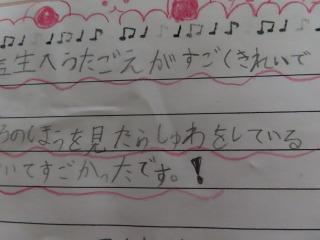 生へうたごえがすごくきれいで
のほうを見たらしゅわをしている
いてすごかったです。!